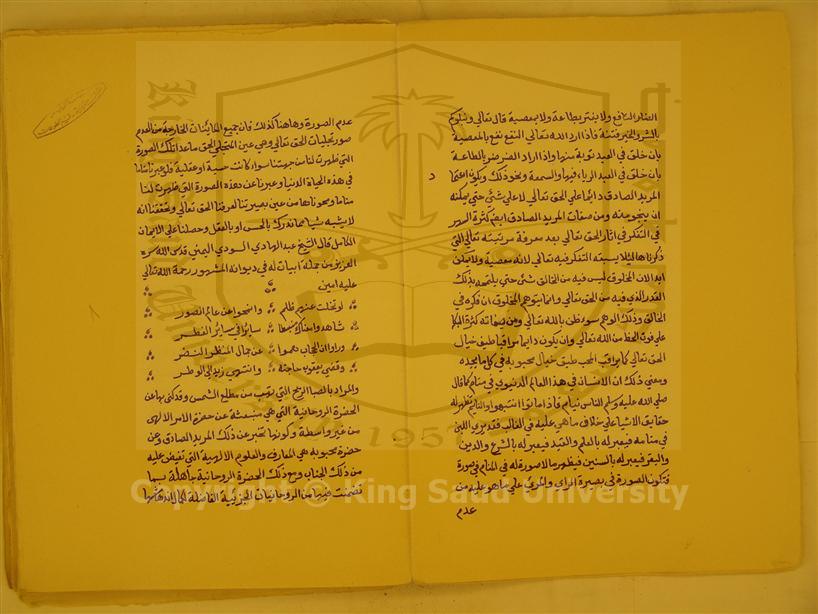 الضار النافع ولا بنتر بطاعة ولا بمعصية قال تعالى ونبلوكم
بالشر والخير فتنة فاذا اراد الله تعالى النفع نفع بالمعصية
بان خلق في العبد توبة منها واذا اراد الضر ضر بالطاعة
بان خلق في العبد الرياء فيها والسمعة ونحو ذلك ويكون
المريد الصادق دائما على الحق تعالى لا على شئ حتى
ان ومن صفات المريد الصادق ايضا كثرة السهر
في التفكر في اثار الحق تعالى بعد معرفة مرتبته تعالى التي
ذكرناها لئلا يسبقه التفكر فيه تعالى لانه معصية ولا يمكن
ابدا لان المخلوق ليس فيه من الخالق شئ حتى بذلك
القدر الذي فيه من الحق تعالى وانما يتوهم المخلوق ان فكره في
الخالق وذلك الوهم سوء ظن بالله تعالى ومن صفاته كثرة البكا
على فوت الحظ من الله تعالى وان يكون دائما مراقبا طيف خيال
الحق تعالى كما يراقب المحب طيف خيال محبوبه في كل ما يجده
ومعنى ذلك ان الانسان في هذا العالم الدنيوي في منام كما قال
صلى الله عليه وسلم الناس نيام فاذا ماتوا انتبهوا والنائم تظهر له
حقايق الاشيا على خلاف ما هي عليه في الغالب فقد يرى اللبن
في منامه فيعبر له بالعلم والقيد فيعبر له بالشرع والدين
والبقر فيعبر له بالسنين فيظهر ما لا صورة له في المنام في صورة
فتكون الصورة في بصيرة الرائي والمرئي على ما هو عليه من
عدم
عدم الصورة وهاهنا كذلك فان جميع الكائنات الخارجة من العدم
صور تجليات الحق تعالى وهي عين المتجلي الحق ما عدا تلك الصورة
التي ظهرت لنا من جهتنا سواء كانت حسية او عقلية
في هذه الحياة الدنيا وعبرنا عن دهذه الصورة التي ظهرت لنا
منا ما ومحوناها من عين بصيرتنا لعرفنا الحق تعالى وتحققنا انه
لا يشبه شيأ مما ندرك بالحس او بالعقل وحصلنا على الايمان
الكامل قال الشيخ عبد الهادي السودي اليمني قدس الله سره
العزيز من جملة ابيات له في ديوانه المشهور رحمة الله تعالى
عليه امين
لو تخلت عنهم ظلم وانمحوا عن عالم الصور
شاهدوا معناك منبسطا سائرا في سائر الفطر
وراوا ان الحجاب هموا عن جمال المنظر النضر
وقضى يعقوب حاجته وانتهى زيد الى الوطر
والمراد بالصبا الريح التي تهب من مطلع الشمس وقد كنى بها عن
الحضرة الروحانية التي هي منبعثة عن حضرة الامر الالهي
من غير واسطة وكونها تخبر عن ذلك المريد الصادق وعن
حضرة محبوبه هي المعارف والعلوم الالهية التي تفيض عليه
من ذلك الجناب ومع ذلك الحضرة الروحانية جاهلة بما
تضمنت فيها من الروحانيات الجزئية الفاضلة الكمال
د
Copyright © King Saud University
King Saud University
1957